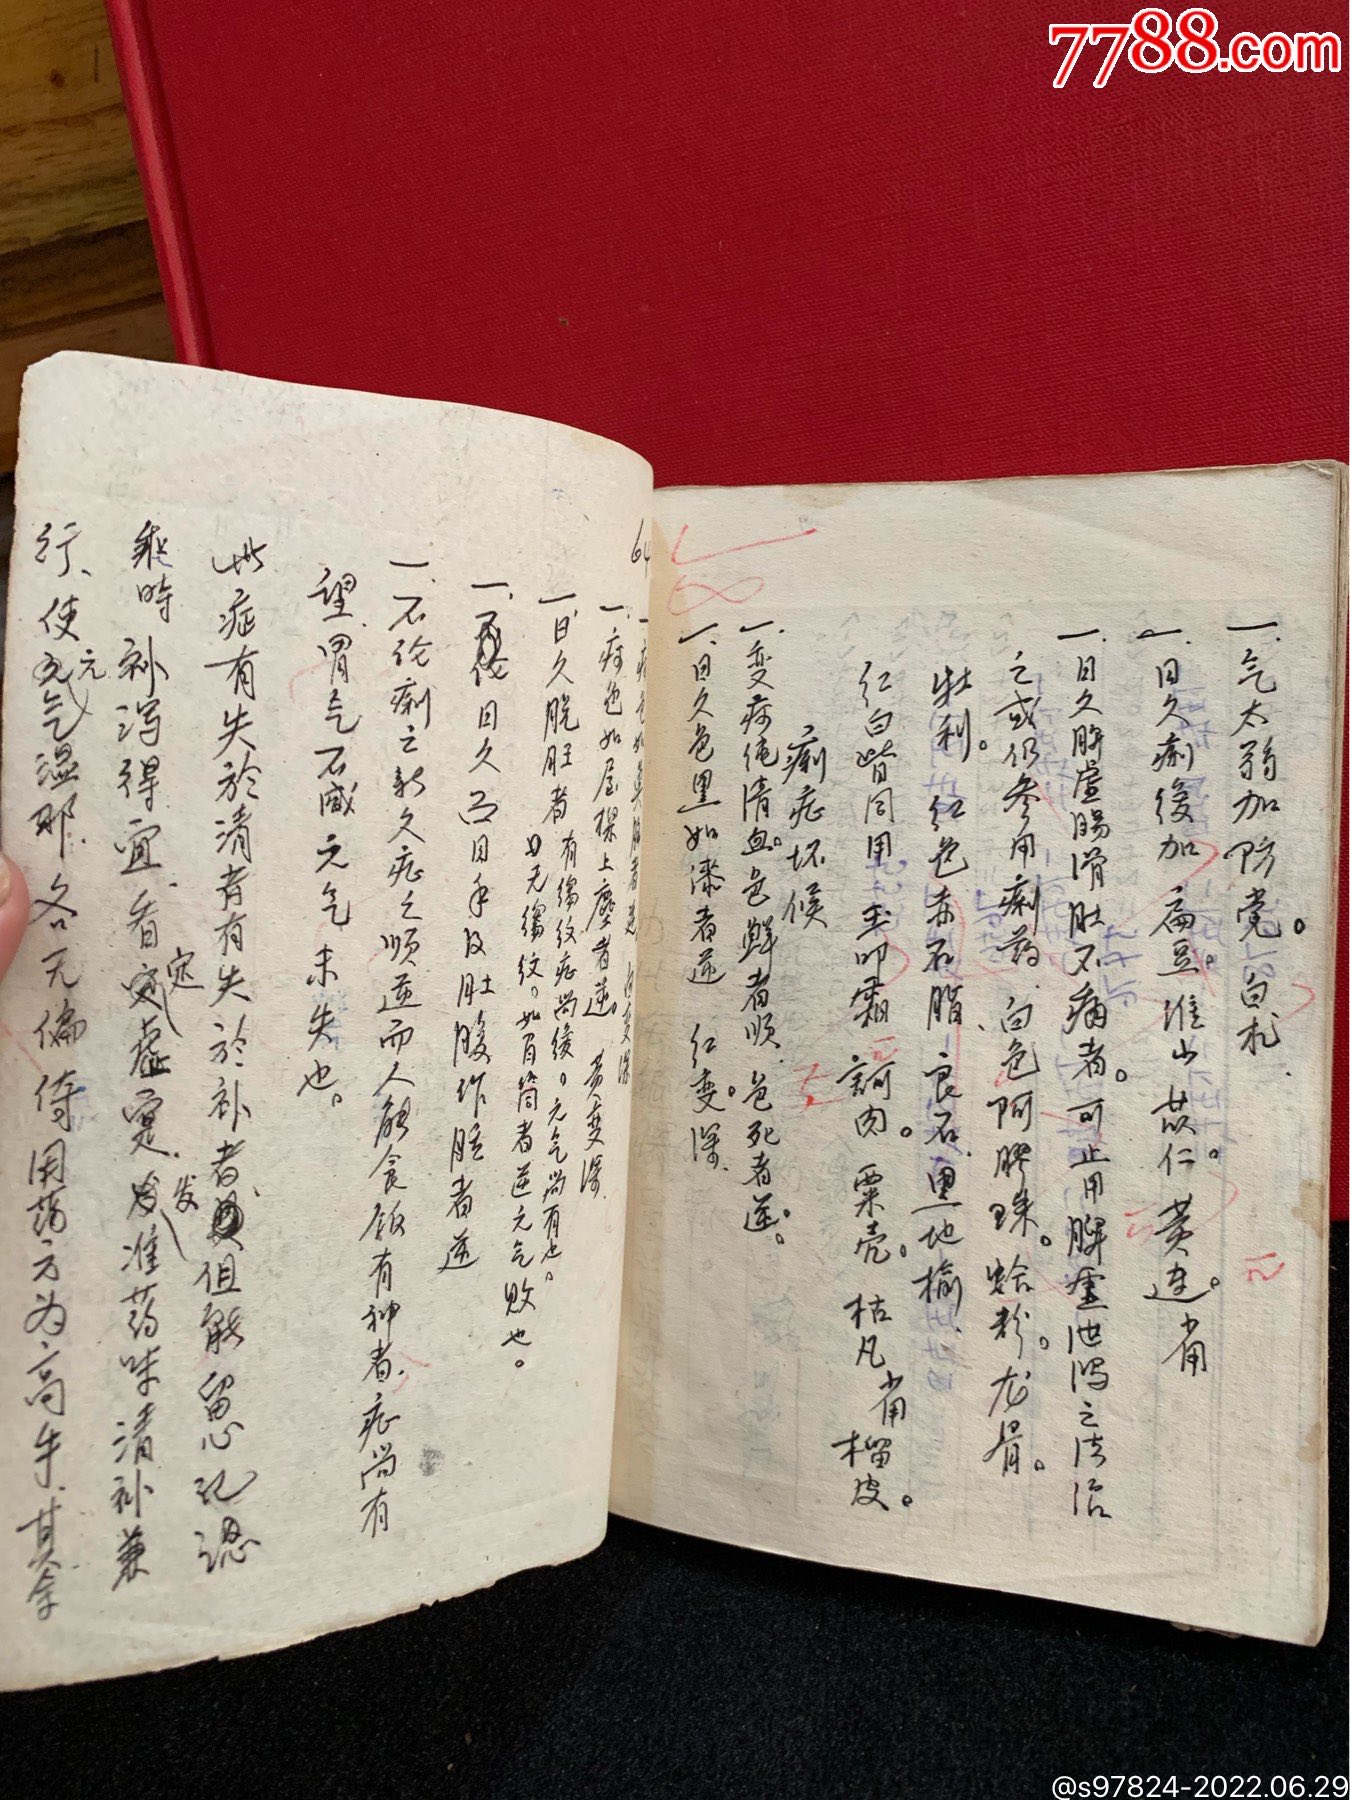 7788.com
一、气太弱加防党。白札.
一、日久痢后加扁豆。淮山苡仁。黄连。少用
一、日久脾虚肠滑肚不痛者。可止用脾虚泄泻之法治
之或仍参用痢药、白色阿胶珠。蛤粉。龙骨。
牡利。红色赤石脂、良石、黑地榆、
红白皆同用 霜 诃肉。粟壳。枯凡少用榴皮。
痢症坏候
一、变痢纯清血。色鲜者顺、色死者逆。
一、日久色黑如漆者逆 红变深.
64
一、痢色如屋樑上塵者逆。黄变深.
一、日久脱肛者有绉纹症尚缓。元气尚有也。
肛无绉纹。如盲筒者逆元气败也。
一、不论日久 手及肚腹作胀者逆
一、不论痢之新久症之顺逆而人能食飯有神者、症尚有
望、胃气不减元气未失也。
此症有失於清者有失於补者、但能留心记認
乘時补泻得宜、看定虚寔、发准药味清补兼
行、使元气湿邪、各无偏倚用药方为高手、其余
@s97824-2022.06.29